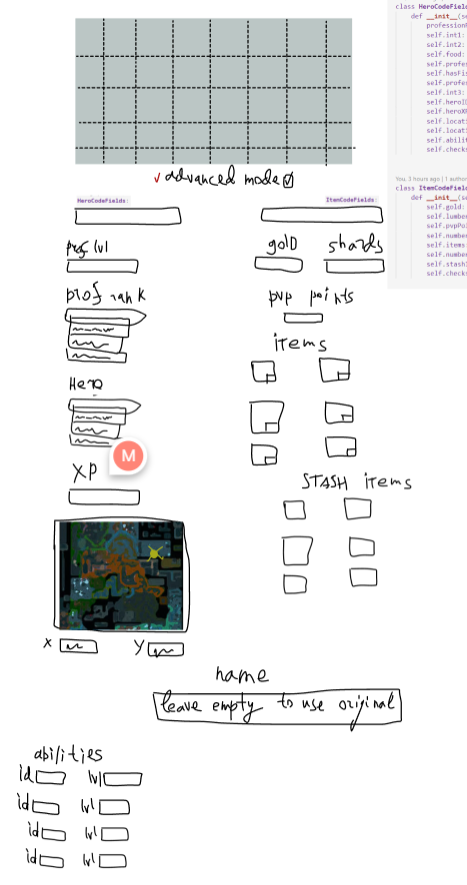 class HeroCodeFields
def __init__(se
profession
self.int1:
self.int2:
self.food:
self.profes
self.hasFis
self.profes
self.int3:
self.heroI
self.heroX
self.locati
self.locati
self.abilit
self.checks
You, 3 hours ago | 1 author
class ItemCodeFields
def __init__(se
self.gold:
self.lumbe
self.pvpPoi
self.number
self.items
self.number
self.stashI
self.checks
advanced mode
HeroCodeFields: ItemCodeFields:
prof lvl gold shards
prof rank pvp points
items
Hero
M
XP STASH items
X Y
name
leave empty to use original
abilities
id lvl
id lvl
id lvl
id lvl